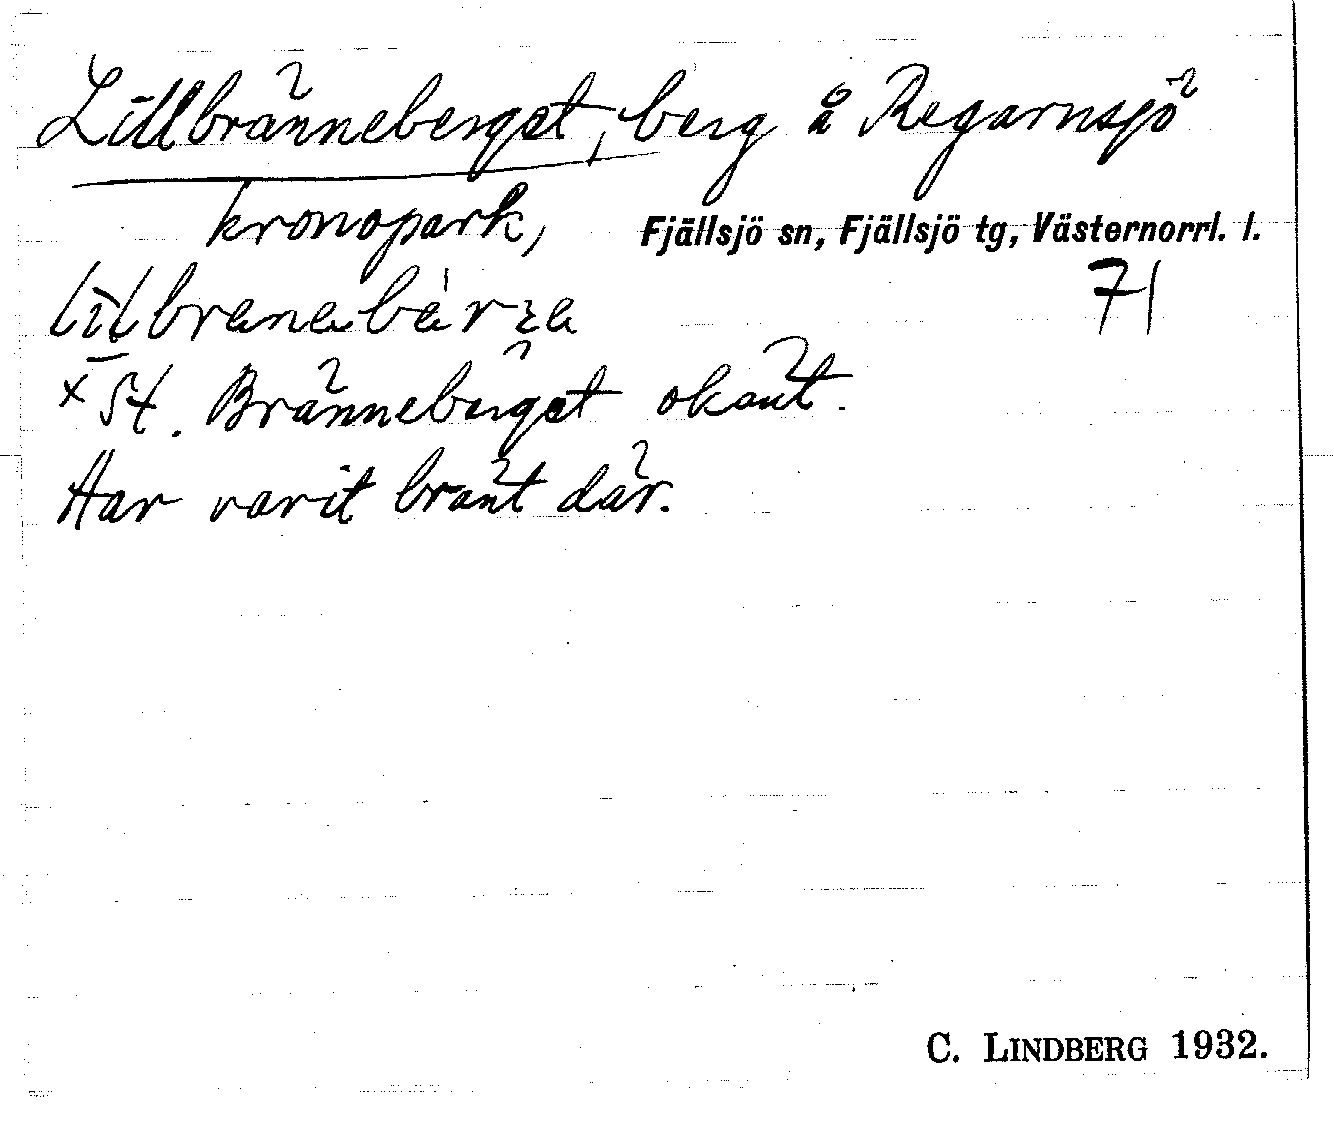 Lillbränneberget, berg å Regarnsjö
kronopark, Fjällsjö sn, Fjällsjö tg, Västernorrl. l.
71
x St. Bränneberget okänt.
Har varit bränt där.
C. LINDBERG 1932.